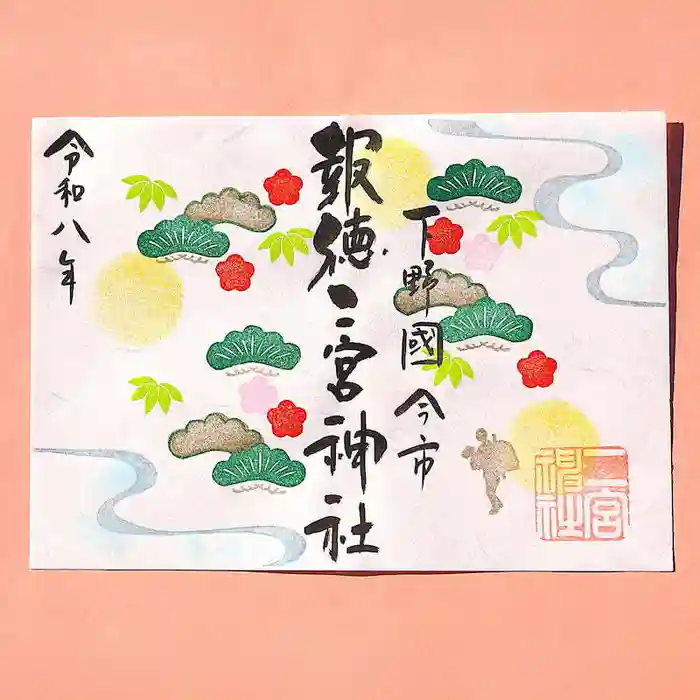 下野國 今市
報徳二宮神社
令和八年
二宮
神社